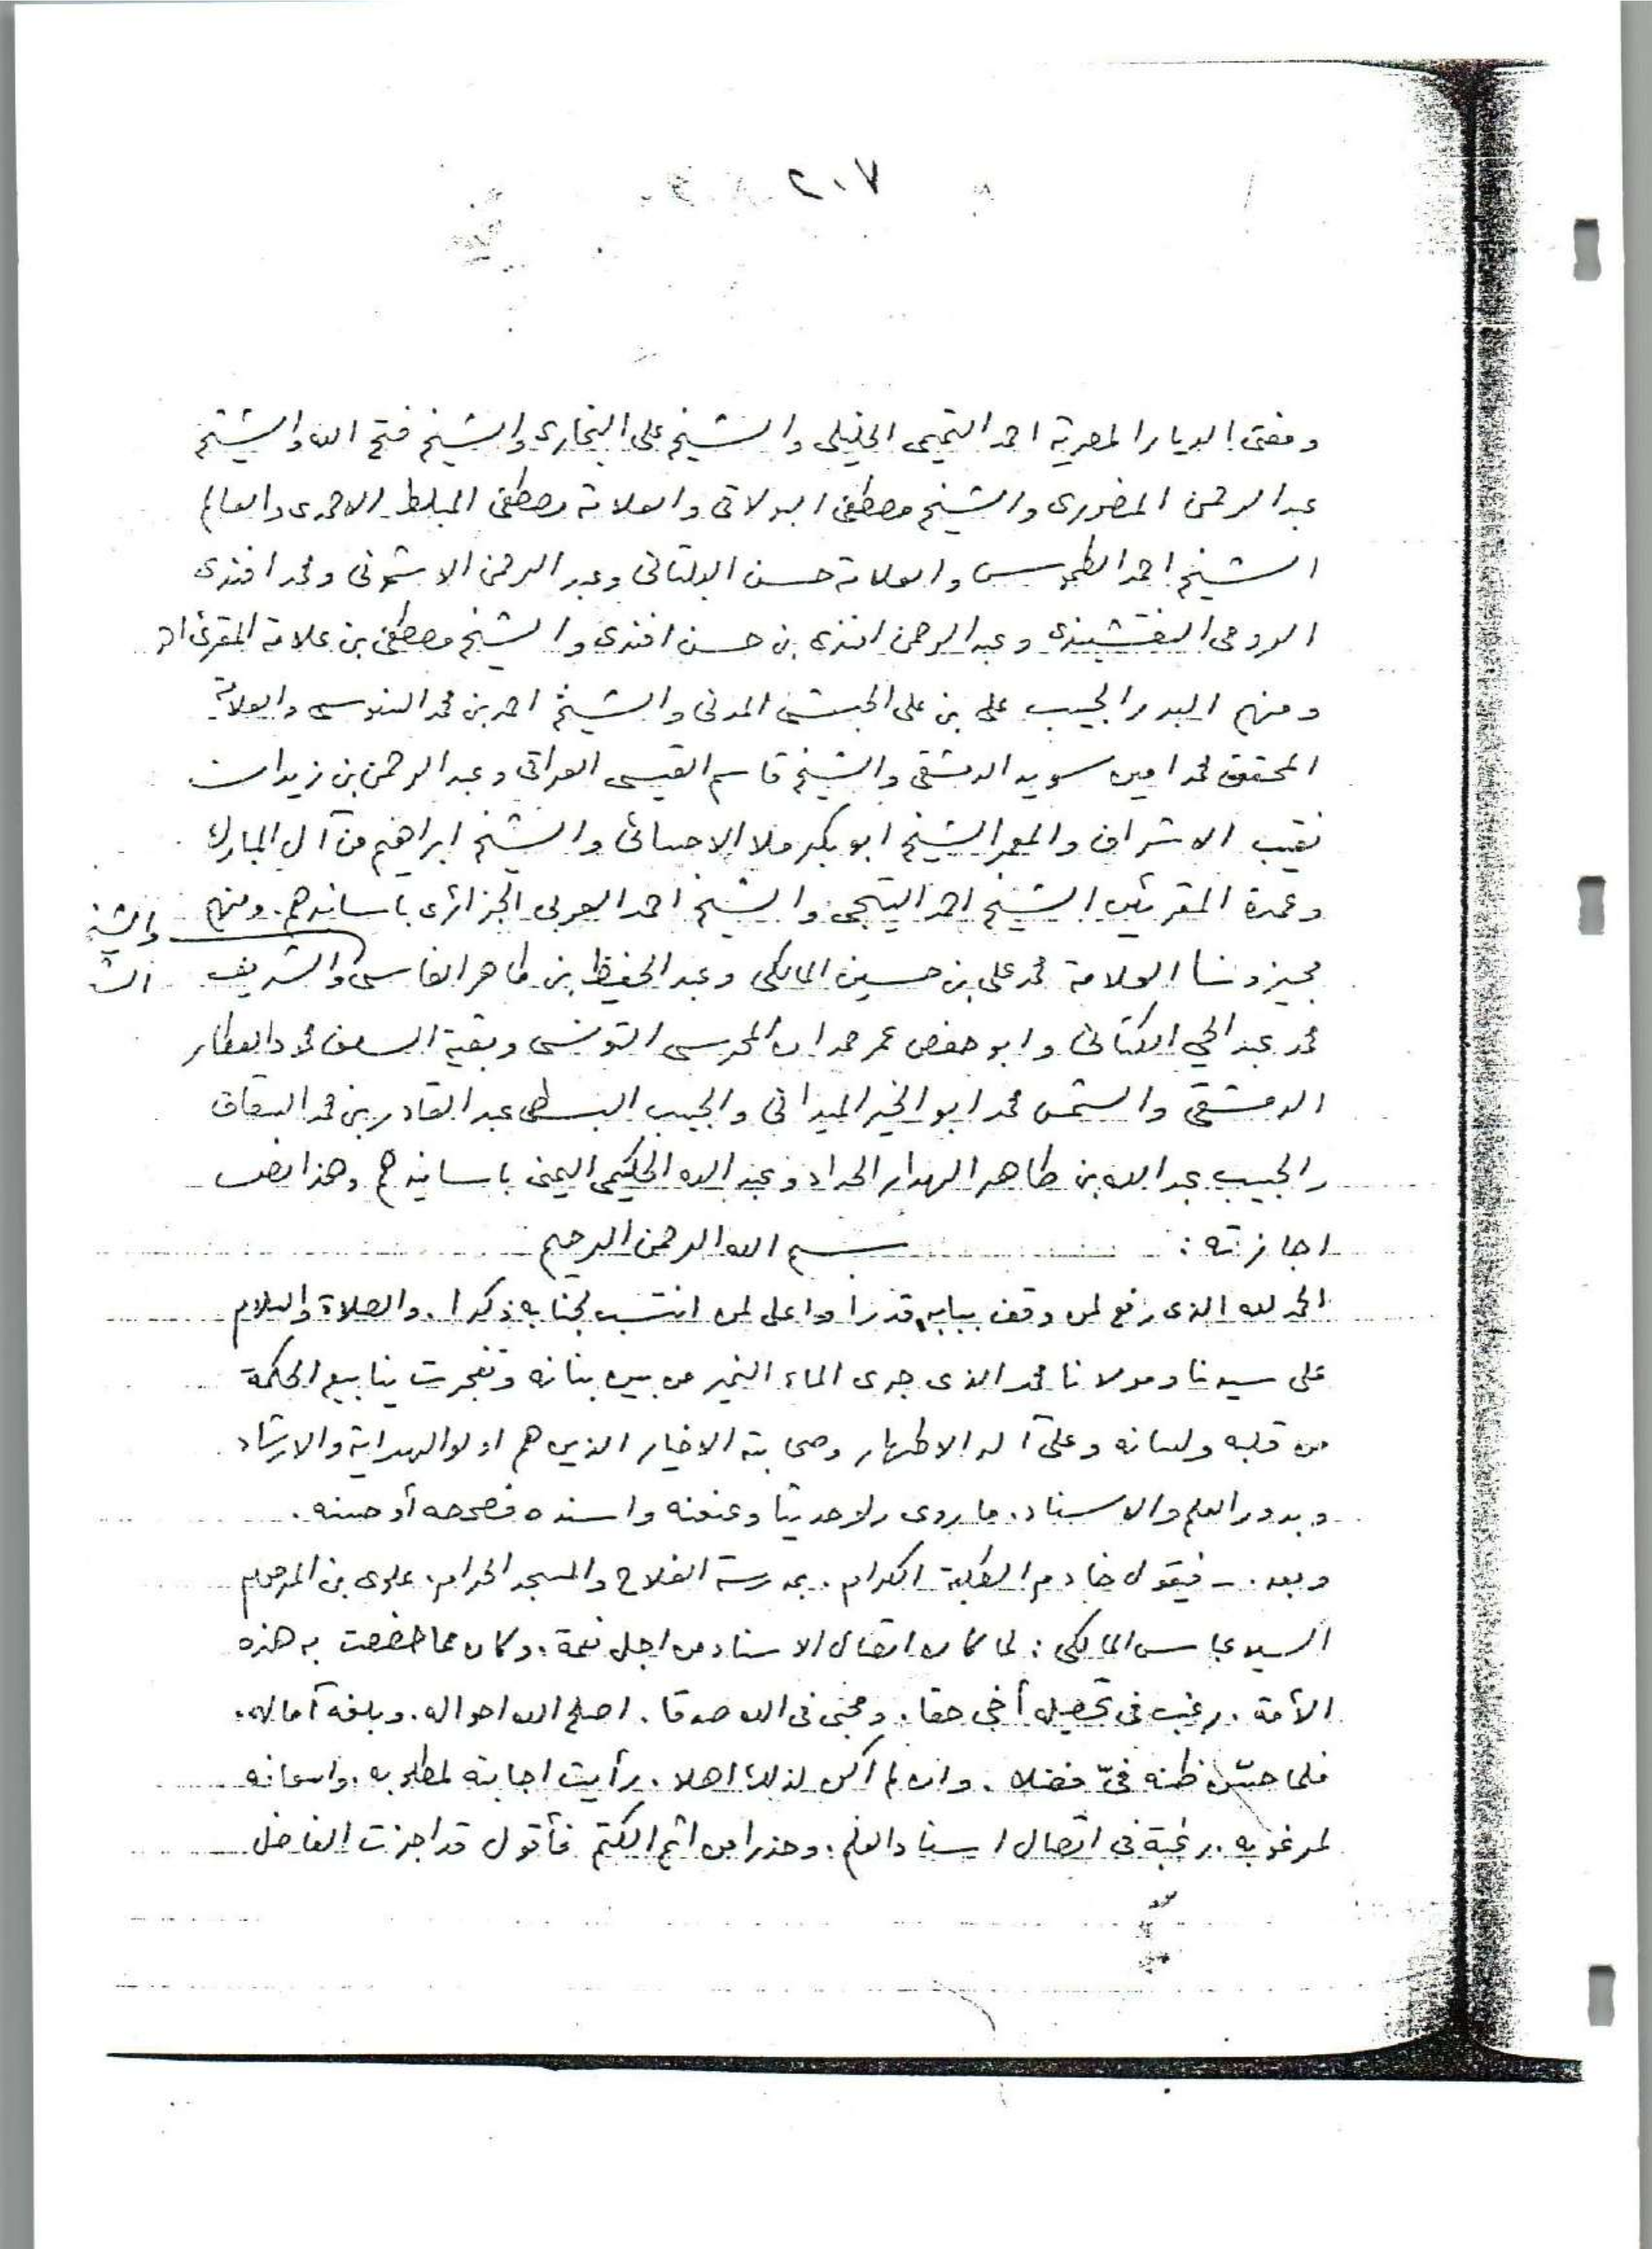 ٢٠٧
ومفتى الديار المصرية احمد التميمى الخليلى والشيخ على البخارى والشيخ فتح الله والشيخ
عبد الرحمن المنصورى والشيخ مصطفى البولاقى والعلامة مصطفى المبلط الاحمدى والعالم
الشيخ احمد والعلامة حسن البلتانى وعبد الرحمن الاشمونى ومحمد افندى
الرومى النقشبندى وعبد الرحمن افندى بن حسن افندى والشيخ مصطفى بن علامة المقرئ
ومنهم البدر الحبيب على بن على الحبشى المدنى والشيخ احمد بن محمد السنوسى والعلامة
المحقق محمد امين سويد الدمشقى والشيخ قاسم القيسى العراقى وعبد الرحمن بن زيدان
نقيب الاشراف والمعمر الشيخ ابو بكر ملا الاحسائى والشيخ ابراهيم من آل المبارك
وعمدة المقرئين الشيخ احمد التيجى والشيخ احمد العربى الجزائرى باسانيدهم. ومنهم
والشيخ
مجيزونا العلامة محمد على بن حسين المالكى وعبد الحفيظ بن طاهر الفاسى والشريف
محمد عبد الحي الكتانى وابو حفص عمر حمدان المحرسى التونسى وبقية السلف محمد العطار
الدمشقى والشمس محمد ابو الخير الميدانى والحبيب عبد القادر بن محمد السقاف
والحبيب عبد الله بن طاهر الهدار الحداد وعبد الله الحكيمى اليمنى باسانيدهم وهذا نص
اجازته : بسم الله الرحمن الرحيم
الحمد لله الذى رفع لمن وقف ببابه قدرا واعلى لمن انتسب لجنابه ذكرا. والصلاة والسلام
على سيدنا ومولانا محمد الذى جرى الماء النمير من بين بنانه وتفجرت ينابيع الحكمة
من قلبه ولسانه وعلى آله الاطهار وصحابته الاخيار الذين هم اولو الهداية والارشاد
وبدور العلم والاسناد. ما روى راو حديثا وعنعنه واسنده فصححه أو حسنه.
وبعد. - فيقول خادم الطلبة الكرام. بمدرسة الفلاح والمسجد الحرام. علوى بن المرحوم
السيد عباس المالكى : لما كان اتصال الاسناد من اجل نعمة. وكان مما خصصت به هذه
الأمة. رغب فى تحصيل أخى حقا. ومحبى فى الله صدقا. اصلح الله احواله. وبلغه آماله.
فلما حسن ظنه فىّ فضلا. وان لم أكن لذلك اهلا. رأيت اجابته لمطلوبه. واسعافه
لمرغوبه. رغبة فى اتصال اسناد العلم. وحذرا من اثم الكتم فأقول قد اجزت الفاضل